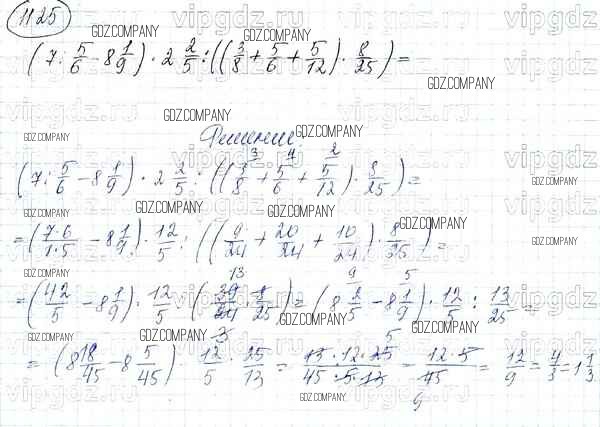 1125
(7 : 5/6 − 8 1/9) · 2 2/5 : ((3/8 + 5/6 + 5/12) · 8/25) =
Решение:
(7 : 5/6 − 8 1/9) · 2 2/5 : ((3/8 + 5/6 + 5/12) · 8/25) =
= (7·6/1·5 − 8 1/9) · 12/5 : ((9/24 + 20/24 + 10/24) · 8/25) =
= (42/5 − 8 1/9) · 12/5 : (39/24 · 8/25) = (8 2/5 − 8 1/9) · 12/5 : 13/25 =
= (8 18/45 − 8 5/45) · 12/5 · 25/13 = 13·12·25/45·5·13 = 12·5/45 = 12/9 = 4/3 = 1 1/3
GDZ.COMPANY
vipgdz.ru